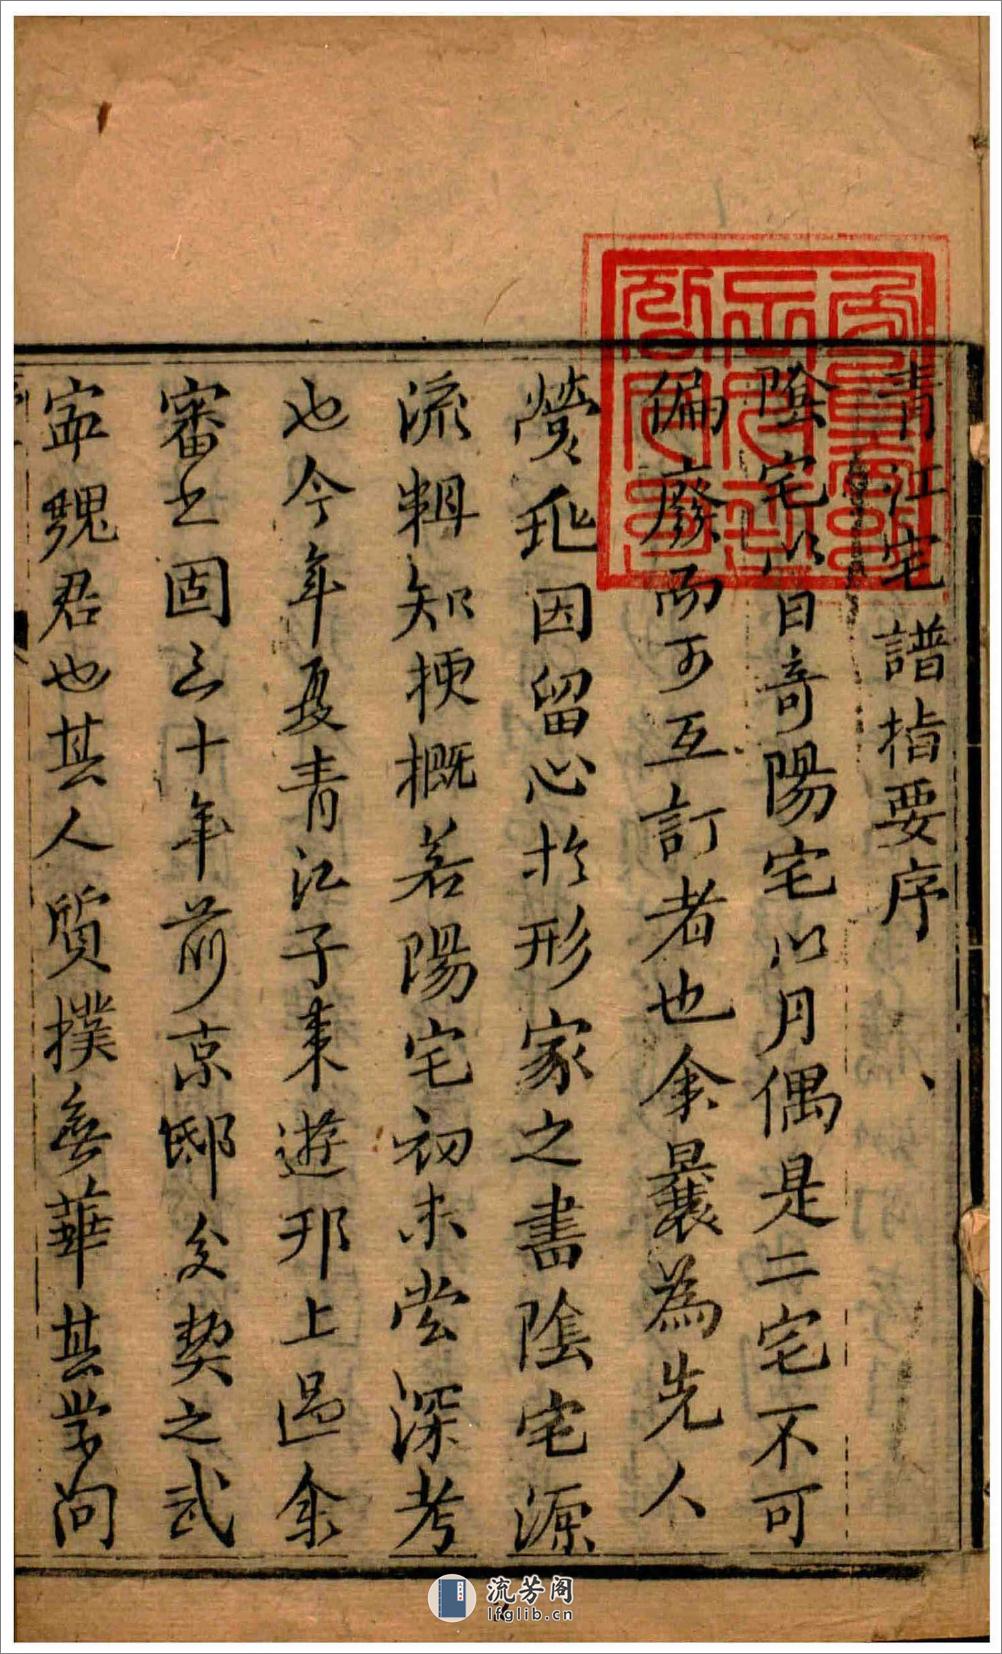 青江宅譜指要序
陰宅以日奇陽宅以月偶是二宅不可
偏廢而可互訂者也余曩為先人
塋兆因留心於形家之書陰宅源
流輯知梗概若陽宅初未嘗深考
也今年夏青江子来遊邗上過余
審之固三十年前京邸交契之武
寧魏君也其人質撲無華其学问
流芳阁
lfglib.cn